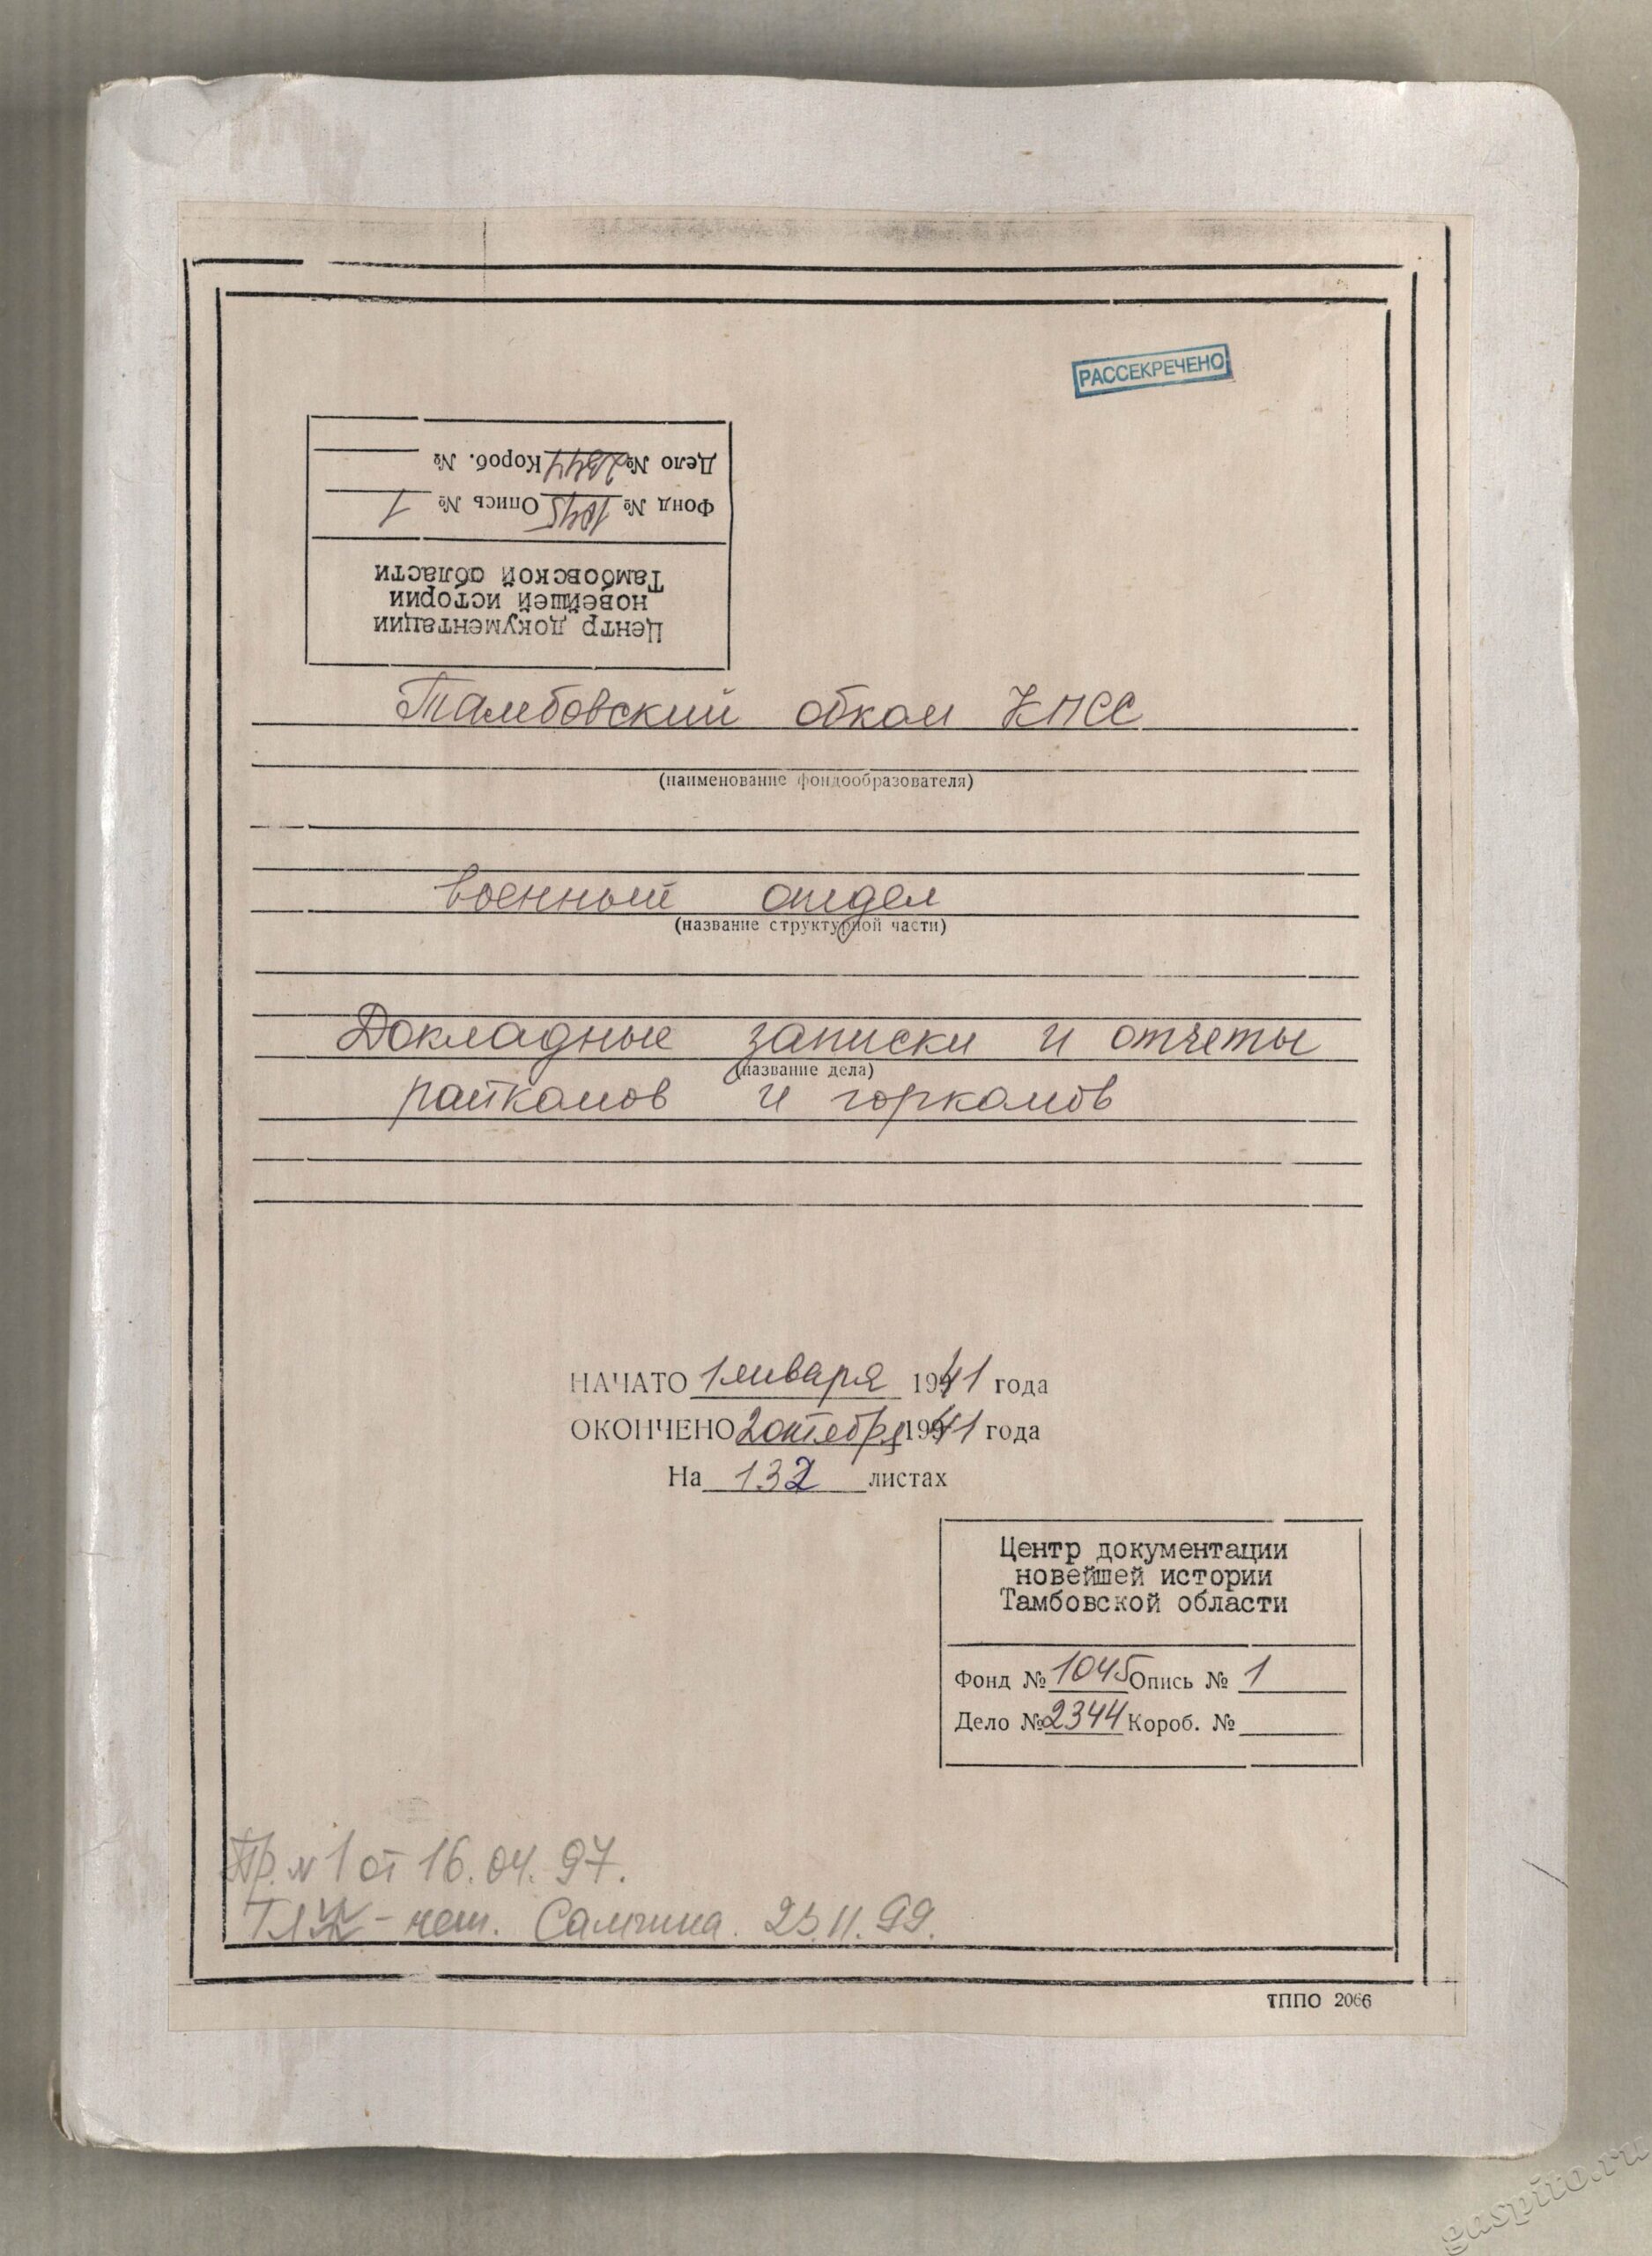 РАССЕКРЕЧЕНО
Центр документации
новейшей истории
Тамбовской области
Фонд № 1045 Опись № 1
Дело № 2344 Короб. №
Тамбовский обком КПСС
(наименование фондообразователя)
военный отдел
(название структурной части)
Докладные записки и отчеты
(название дела)
райкомов и горкомов
НАЧАТО 1 января 1941 года
ОКОНЧЕНО 2 октября 1941 года
На 132 листах
Центр документации
новейшей истории
Тамбовской области
Фонд № 1045 Опись № 1
Дело № 2344 Короб. №
Пр. № 1 от 16.04.97.
23.11.99.
ТППО 2066
gaspito.ru